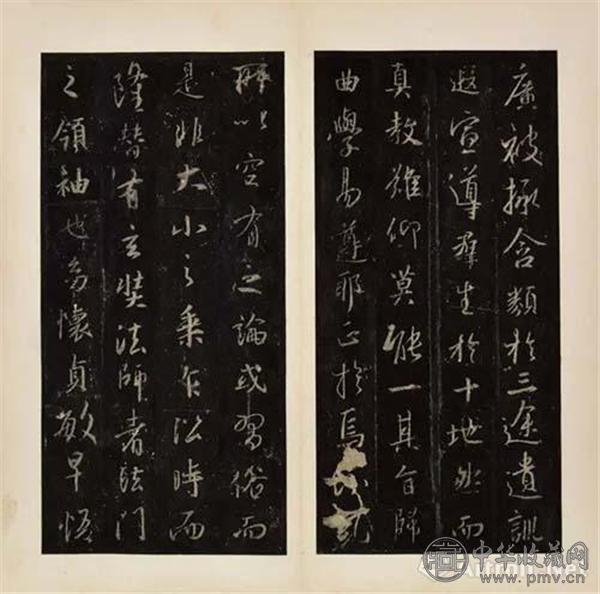 廣被拯含類於三途遺訓
遐宣導羣生於十地然而
真教難仰莫能一其旨歸
曲學易遵耶正於焉糺
所以空有之論或習俗而
是非大小之乘乍沿時而
隆替有玄奘法師者法門
之領袖也幼懷貞敏早悟
中华收藏网
www.pmv.cn